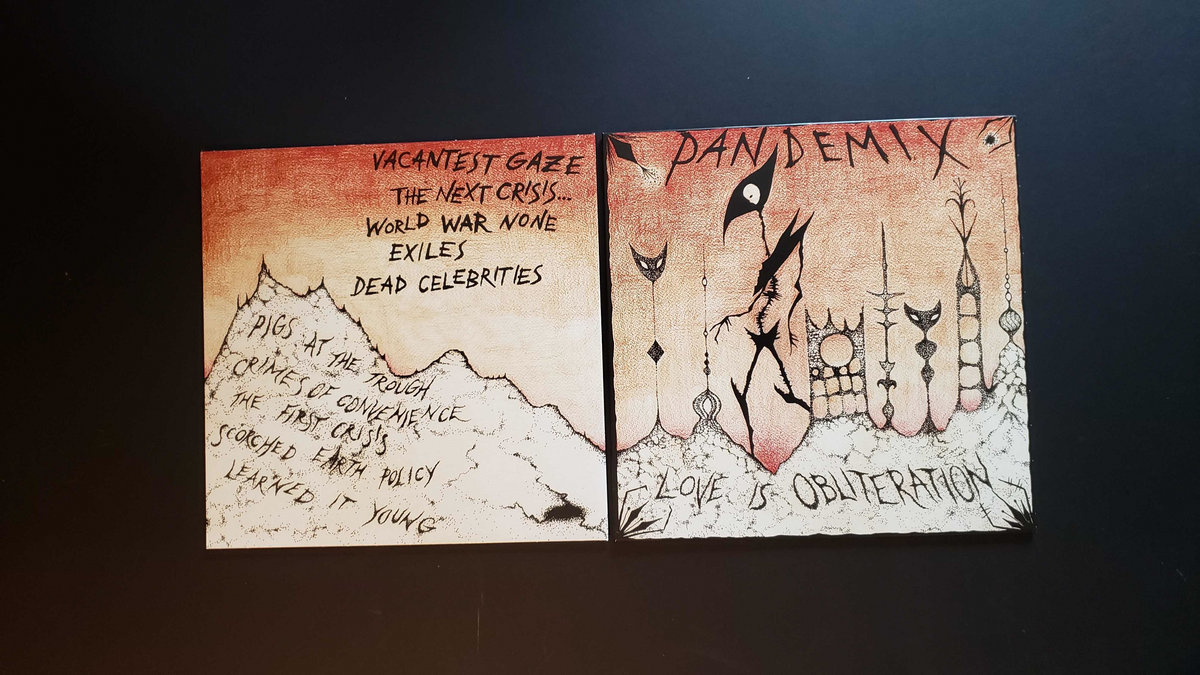 VACANTEST GAZE
THE NEXT CRISIS...
WORLD WAR NONE
EXILES
DEAD CELEBRITIES
PIGS AT THE TROUGH
CRIMES OF CONVENIENCE
THE FIRST CRISIS
SCORCHED EARTH POLICY
LEARNED IT YOUNG
PANDEMIX
LOVE IS OBLITERATION